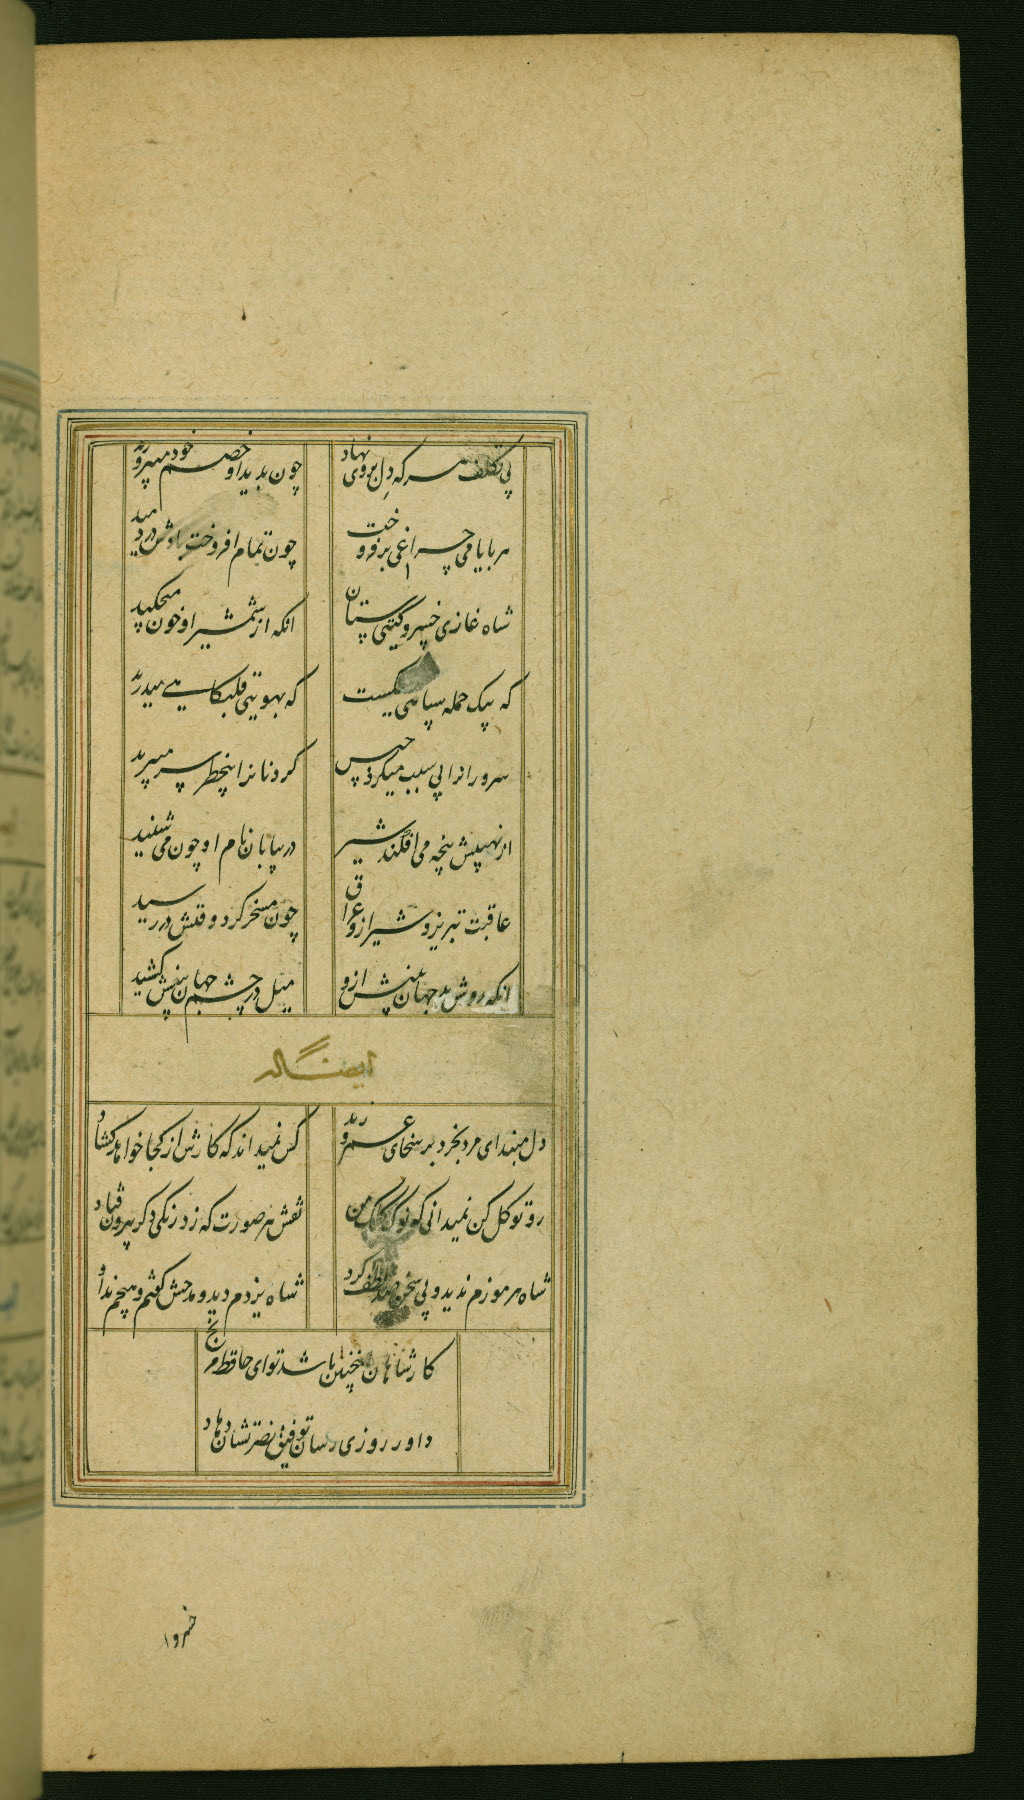 بی تکلف هر که دل بر وی نهاد
چون بدید او خصم خود میپرورید
هر بایامی چراغی بر فروخت
چون تمام افروخت بادش در دمید
شاه غازی خسرو گیتی ستان
انکه از شمشیر او خون میچکید
که بیک حمله سپاهی میشکست
که بهویی قلبکاهی میدرید
سرورانرا بی سبب میکرد حبس
کردنانرا بیخطر سر میبرید
از نهیبش پنجه می افکند شیر
در بیابان نام او چون می شنید
عاقبت تبریز و شیراز و عراق
چون مسخر کرد وقتش در رسید
انکه روشن بد جهان بینش ازو
میل در چشم جهان بینش کشید
ایضا له
دل مبند ای مرد بخرد بر سخای عمرو و زید
کس نمیداند که کارش از کجا خواهد کشاد
رو توکل کن نمیدانی که نوک کلک من
نقش هر صورت که زد رنگی دکر بیرون فتاد
شاه هرموزم ندید و بی سخن صد لطف کرد
شاه یزدم دید و مدحش گفتم و هیچم نداد
کار شاهان اینچنین باشد تو ای حافظ مرنج
داور روزی رسان توفیق نصرتشان دهاد
خسروا